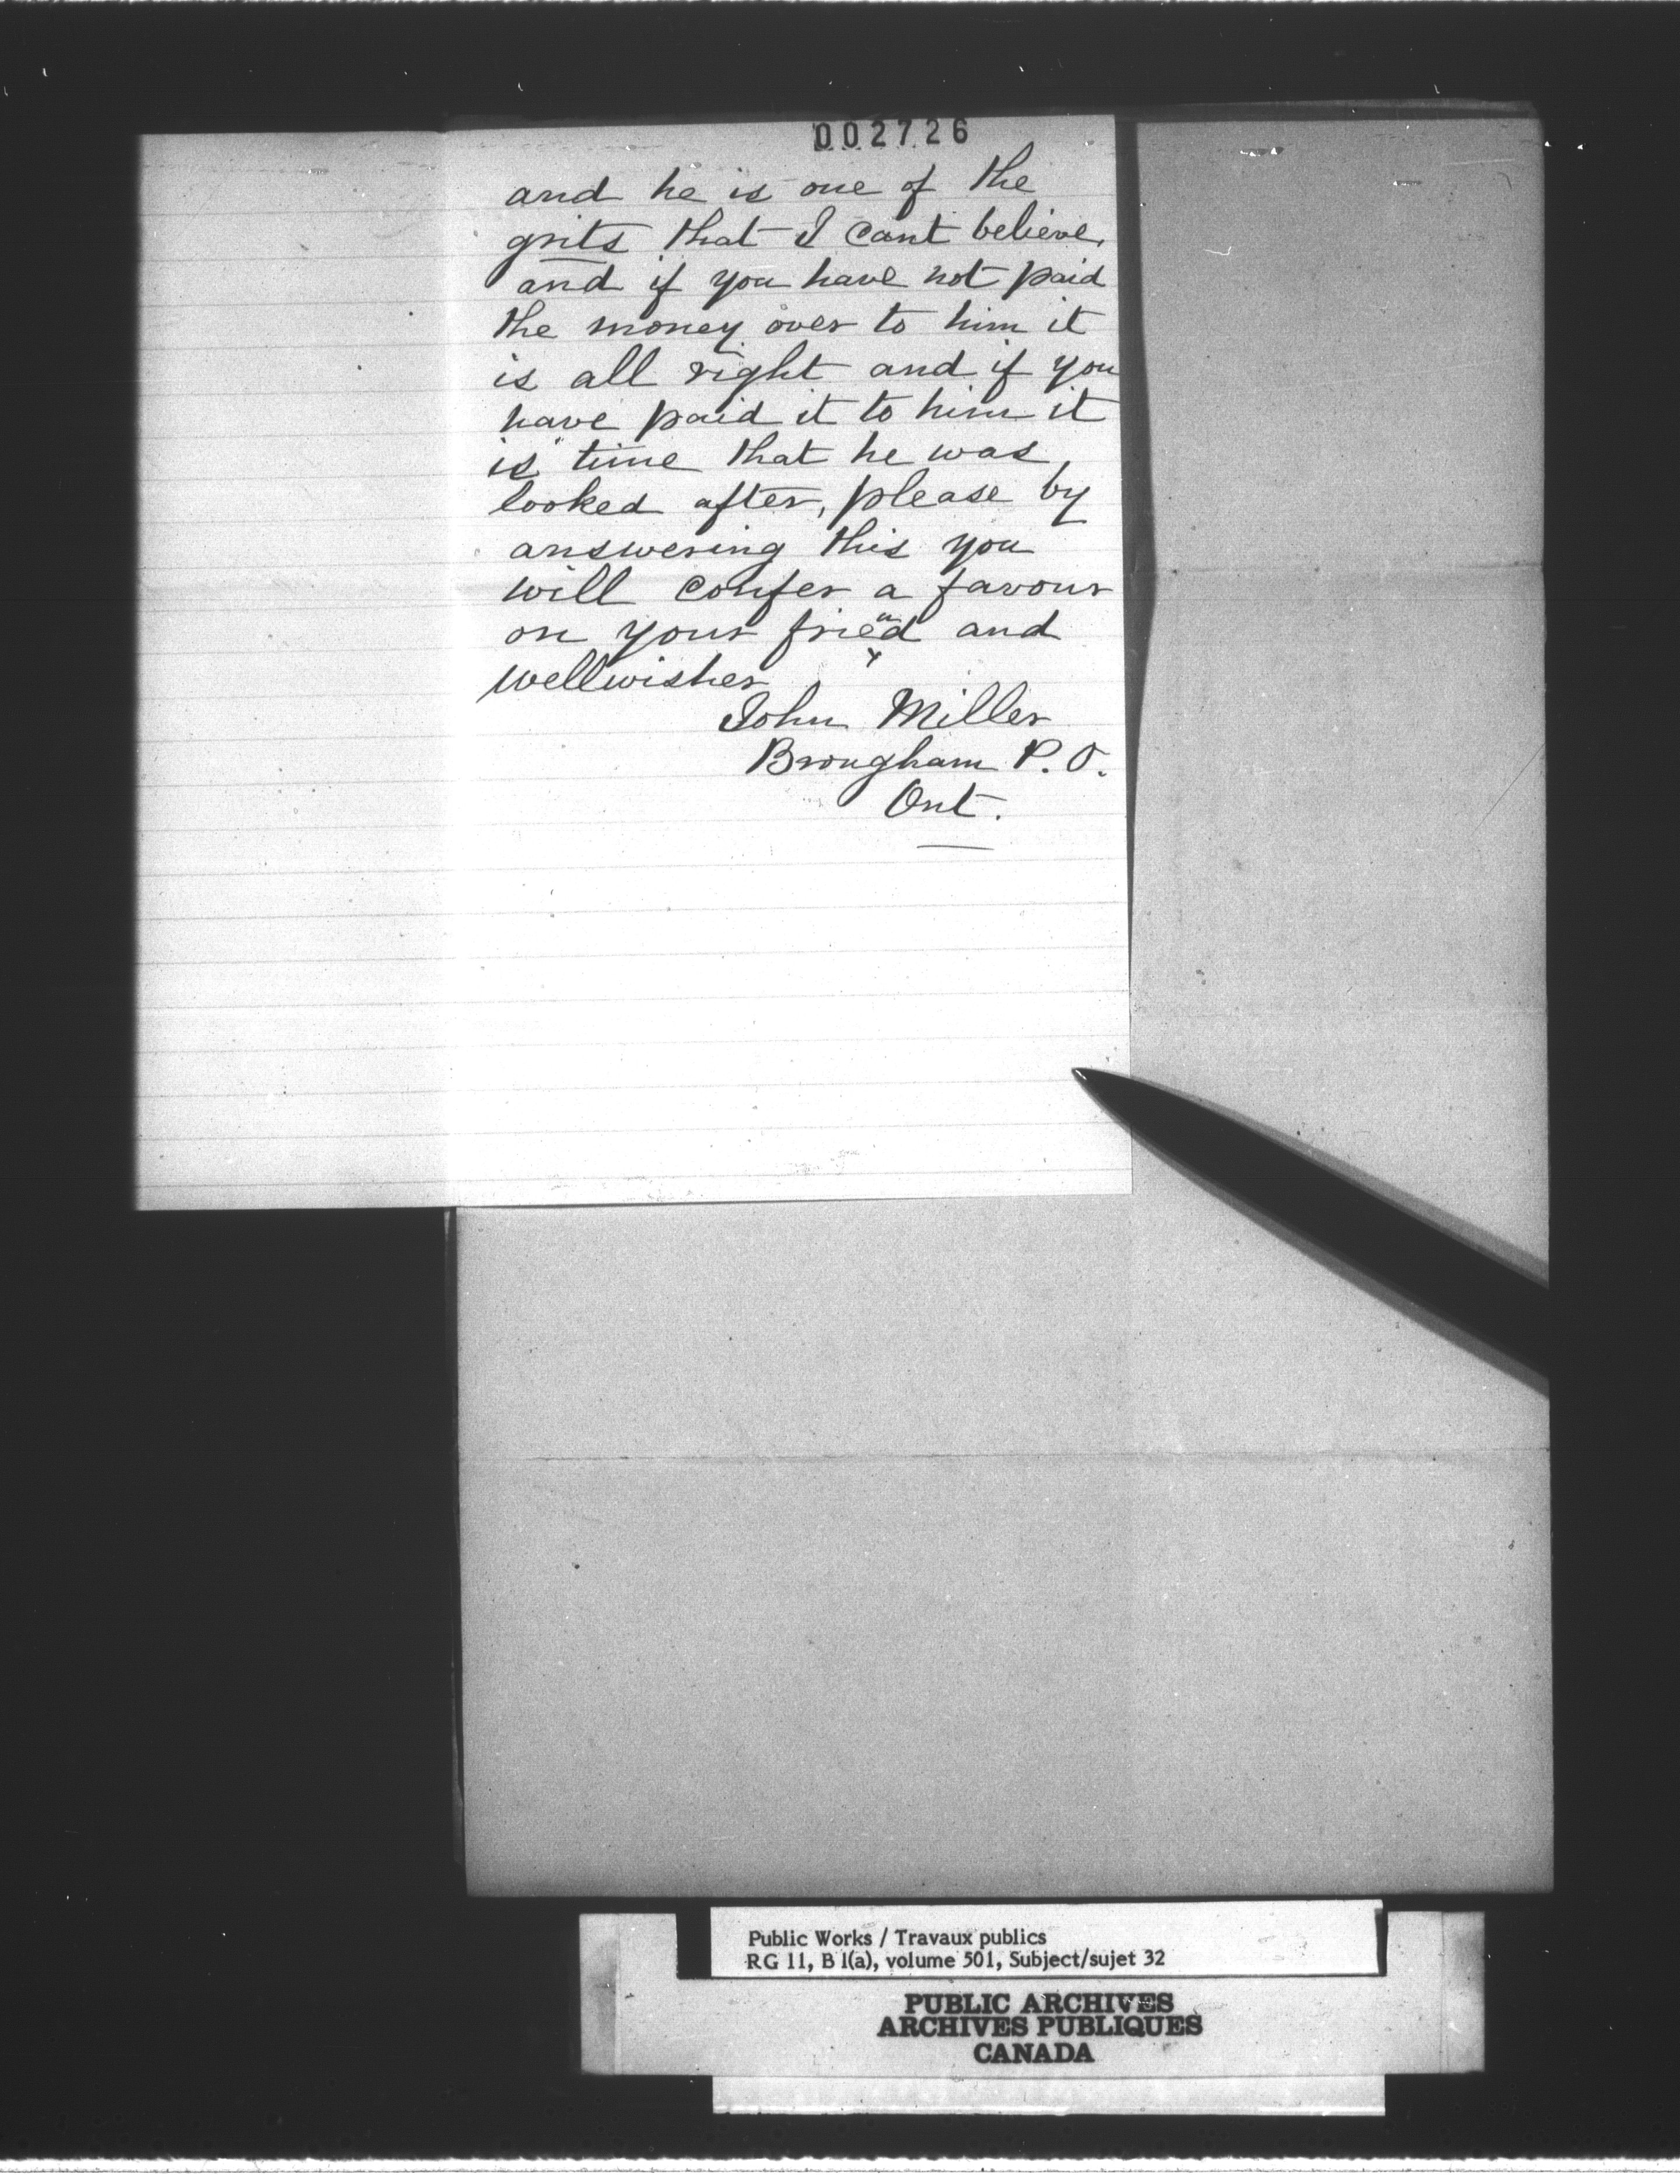 002726
and he is one of the
grits that I cant believe,
and if you have not paid
the money over to him it
is all right and if you
have paid it to him it
is time that he was
looked after, please by
answering this you
will confer a favour
on your friend and
wellwisher
John Miller
Brougham P.O.
Ont.
Public Works / Travaux publics
RG 11, B 1(a), volume 501, Subject/sujet 32
PUBLIC ARCHIVES
ARCHIVES PUBLIQUES
CANADA